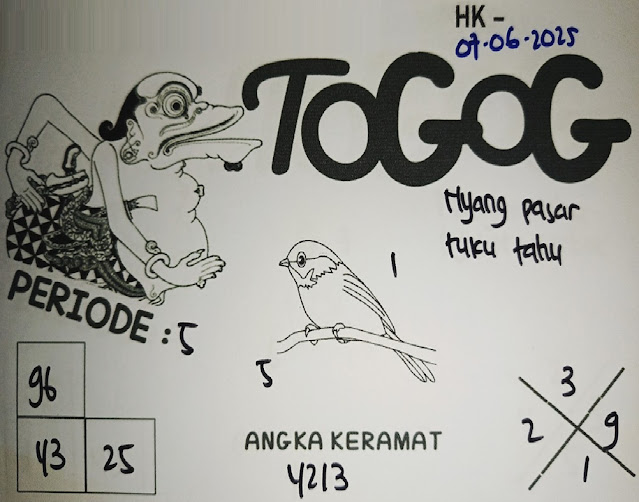 HK -
07-06-2025
TOGOG
Nyang pasar
tuku tahu
PERIODE : 5
1
5
96
43 25
ANGKA KERAMAT
4213
3
2 9
1